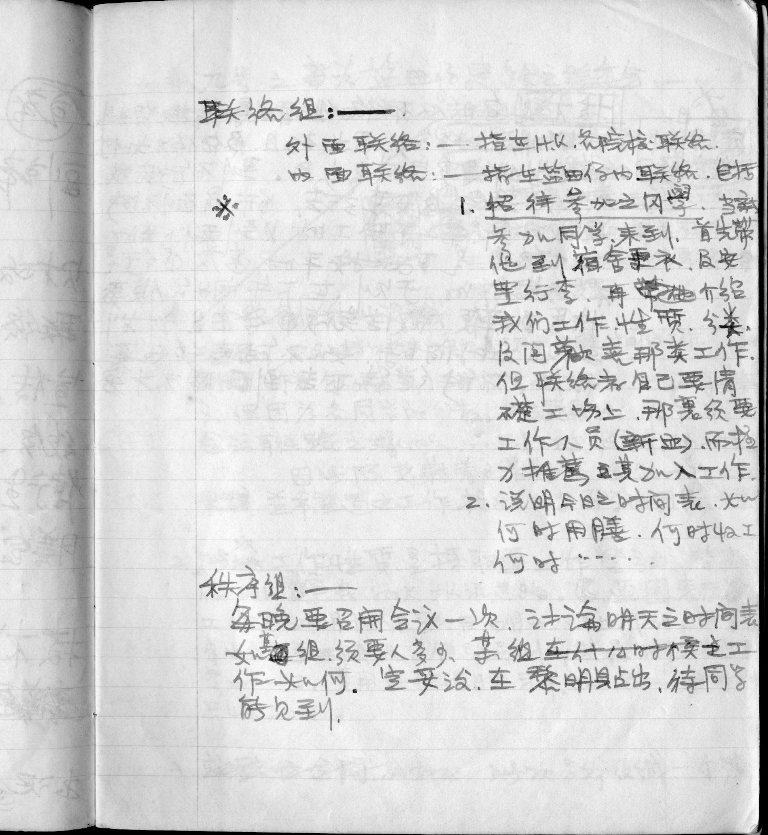 联络组：——
外面联络：— 指在H.K.各院校联络.
内面联络：— 指在蓝田仔内联络. 包括
※
1. 招待参加之同學. 当
参加同学来到, 首先带
他到宿舍 及安
置行李. 再 介绍
我们工作性质. 分类,
及问 欢喜那类工作.
但联络者自己要清
楚工场上, 那裏须要
工作人员 而极
力推薦 其加入工作.
2. 说明今日之时间表. 如
何时用膳. 何时收工
何时 ·····
秩序组：——
每晚要召開会议一次, 讨論明天之时间表
如 组须要人多少, 某组在什么时候之工
作如何. 定妥後. 在黎明貼出, 待同学
能见到.